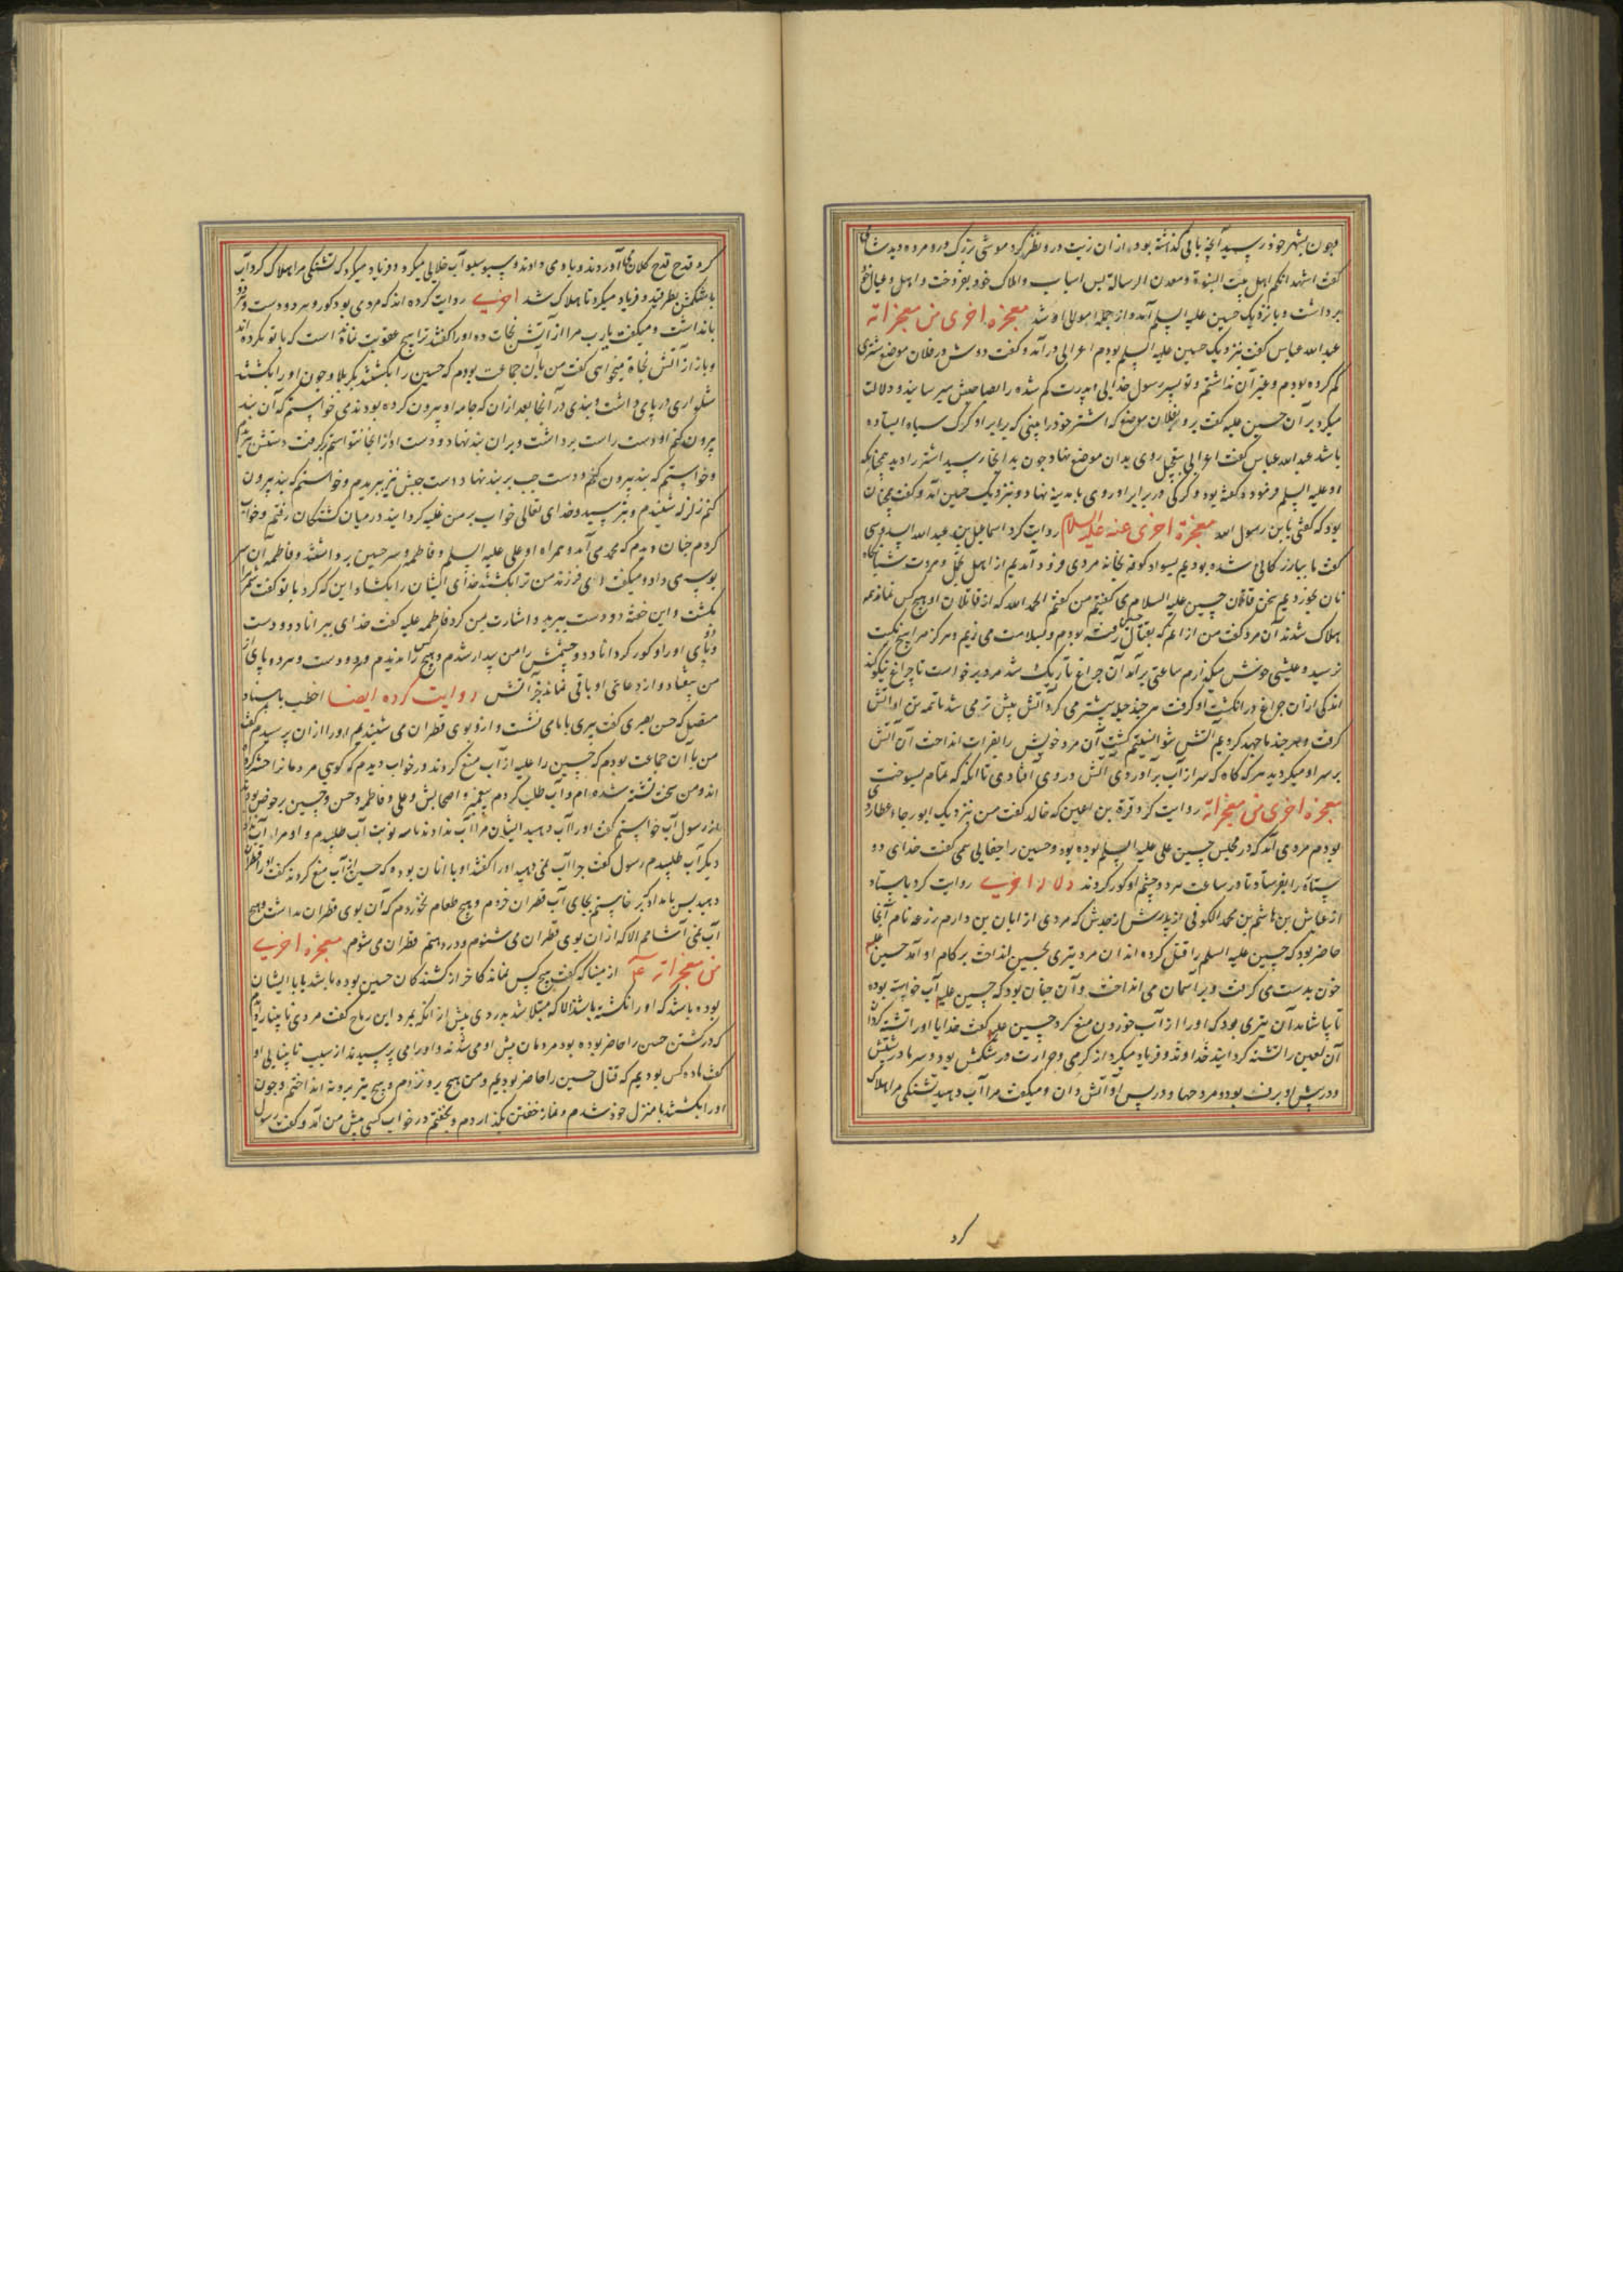 وچون بشهر خود رسید آنچه باقی گذاشته بود از آن زیت درو نظر کرد موشی بزرگ درو مرده دید
گفت اشهد انکم اهل بیت النبوة ومعدن الرسالة پس اسباب واملاک خود بفروخت و اهل و عیال خود
برداشت و با نزدیک حسین علیه السلم آمد و از جمله موالی او شد معجزه اخری من معجزاته
عبد الله عباس گفت بنزدیک حسین علیه السلم بودم اعرابی درآمد و گفت دوش در فلان موضع شتری
کم کرده بودم و غیر آن نداشتم و تو پسر رسول خدایی پدرت کم شده را بصاحبش میرسانید و دلالت
میکرد بر آن حسین علیه گفت برو بفلان موضع که اشتر خود را بینی که برابر او کرک سیاه ایستاده
باشد عبد الله عباس گفت اعرابی بتعجیل روی بدان موضع نهاد چون بدانجا رسید اشتر را دید همچنانکه
او علیه السلم فرموده گفته بود و کرکی در برابر او روی با مدینه نهاد و بنزدیک حسین آمد و گفت همچنان
بود که گفتی یا بن رسول الله معجزة اخری عنه علیه السلام روایت کرد اسماعیل بن عبد الله
گفت ما ببازرگانی شده بودیم بسواد کوفه بخانه مردی فرود آمدیم از اهل
نان بخوردیم سخن قاتلان حسین علیه السلام می گفتیم من گفتم الحمد الله که از قاتلان او هیچ کس نماند همه
هلاک شدند آن مرد گفت من از آنم که بقتال رفته بودم و بسلامت می زیم و هرگز مرا هیچ نکبت
نرسید و عیشی خوش میگذارم ساعتی برآمد آن چراغ تاریک شد مرد برخواست تا چراغ نیکو کند
اندکی از آن چراغ در انگشت او گرفت هر چند حیله بیشتر می کرد آتش بیش تر می شد تا همه تن او آتش
گرفت و هر چند ما جهد کردیم آتش نتوانستیم کشت آن مرد خویش را بفرات انداخت آن آتش
بر سر او میگردید هر که گاه که سر از آب برآوردی آتش در وی افتادی تا آنگه که تمام بسوخت
معجزه اخری من معجزاته روایت کرد قرة بن که خالد گفت من بنزدیک ابو رجاء عطاردی
بودم مردی آمد که در مجلس حسین علی علیه السلم بوده بود و حسین را جفایی می گفت خدای دو
ستاره را بفرستاد تا در ساعت هر دو چشم او کور کردند دلالة اخری روایت کرد باسناد
از عباس بن هاشم بن محمد الکوفی از پدرش از جدش که مردی از ابان بن دارم زرعه نام آنجا
حاضر بود که حسین علیه السلم را قتل کرده اند آن مرد تیری بحسین انداخت بر کام او آمد حسین علیه
خون بدست می گرفت و بر آسمان می انداخت و آن چنان بود که حسین علیه آب خواسته بوده
تا بیاشامد آن تیری بود که او را از آب خوردن منع کرد حسین علیه گفت خدایا او را تشنه گردان
آن لعین را تشنه گردانید خداوند و فریاد میکرد از گرمی و حرارت در شکمش بود و سرما در پشتش
و در پیش او برف بود و مروحها و در پس او آتش دان و میگفت مرا آب دهید تشنگی مرا هلاک
کرد
کرد قدح قدح کلان آوردند و با و می دادند و سبو سبو آب خالی میکرد و فریاد میکرد که تشنگی مرا هلاک کرد تا
با شکمش بطرقید و فریاد میکرد تا هلاک شد اخری روایت کرده اند که مردی بود کور و هر دو دست و هر دو
پا نداشت و میگفت یا رب مرا از آتش نجات ده او را گفتند ترا هیچ عقوبت نمانده است که با تو نکرده اند
و باز از آتش نجاة میخواهی گفت من با آن جماعت بودم که حسین را بکشتند بکربلا و چون او را بکشتند
شلواری در پای داشت و بندی در آنجا بعد از آن که جامه او بیرون کرده بودند می خواستم که آن بند
بیرون کنم او دست راست برداشت و بر آن بند نهاد و دست او از آنجا نتوانستم برگرفت دستش ببریدم
و خواستم که بند بیرون کنم و دست چپ بر بند نهاد دست چپش نیز ببریدم و خواستم که بند بیرون
کنم زلزله شنیدم و بترسیدم و خدای تعالی خواب بر من غلبه گردانید در میان کشتگان رفتم و خواب
کردم چنان دیدم که محمد می آمد و همراه او علی علیه السلم و فاطمه و سر حسین برداشتند و فاطمه آن سر
بوسه می داد و میگفت ای فرزند من ترا بکشتند خدای ایشان را بکشاد این که کرد با تو گفت شمر مرا
بکشت و این خفته دو دست ببرید و اشارت بمن کرد فاطمه علیه گفت خدای ببراناد دو دست
و دو پای او را و کور گرداناد دو چشمش را من بیدار شدم و هیچ کس را ندیدم و دو دست و هر دو پای از
من بیفتاد و از دعای او باقی نماند جز آتش روایت کرده ایضا اخطب باسناد
متصل که حسن بصری گفت پیری با ما می نشست و ازو بوی قطران می شنیدیم او را از آن پرسیدم گفت
من با آن جماعت بودم که حسین را علیه از آب منع کردند در خواب دیدم که گویی مردمانرا حشر کرده
اند و من سخت تشنه شده ام و آب طلب کردم پیغمبر و اصحابش و علی و فاطمه و حسن و حسین بر حوض بودند
از رسول آب خواستم گفت او را آب دهید ایشان مرا آب ندادند تا سه نوبت آب طلبیدم و او مرا
دیگر آب طلبیدم رسول گفت چرا آب نمی دهید او را گفتند او با آنان بوده که حسین از آب منع کردند گفت او را قطران
دهید پس بامداد که برخاستم بجای آب قطران خوردم و هیچ طعام نخوردم که آن بوی قطران نداشت و هیچ
آب نمی آشامم الا که از آن بوی قطران می شنوم و در دهنم قطران می شوم معجزه اخری
من معجزاته از میناکه گفت هیچ کس نماند کاخر از کشندکان حسین بوده باشد یا با ایشان
بوده باشد که او را نکشته باشد الا که مبتلا شد بدردی پیش از آنکه بمرد ابن رماح گفت مردی نابینا را دیدم
که در کشتن حسین را حاضر بوده بود مردمان پیش او می شدند و او را می پرسیدند از سبب نابینایی او
گفت ما ده کس بودیم که قتال حسین را حاضر بودیم و من هیچ برو نزدم و هیچ تیر برو نه انداختم و چون
او را بکشتند با منزل خود شدم و نماز خفتن بگذاردم و بخفتم در خواب کسی پیش من آمد و گفت رسول